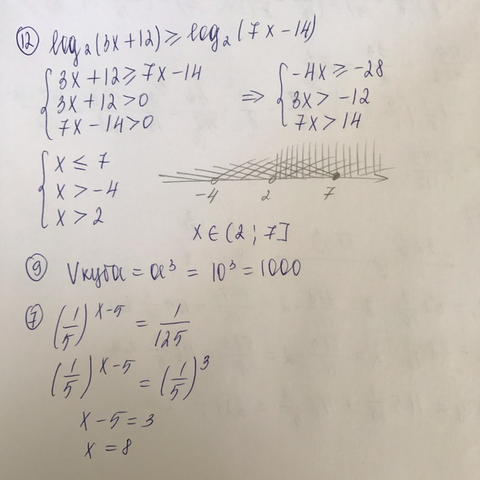 12 log₂(3x+12) ≥ log₂(7x-14)
{ 3x+12 ≥ 7x-14
3x+12 > 0
7x-14 > 0
⇒ { -4x ≥ -28
3x > -12
7x > 14
{ x ≤ 7
x > -4
x > 2
-4 2 7
x ∈ (2 ; 7]
9 Vкуба = a³ = 10³ = 1000
7 (1/5)^(x-5) = 1/125
(1/5)^(x-5) = (1/5)³
x-5 = 3
x = 8